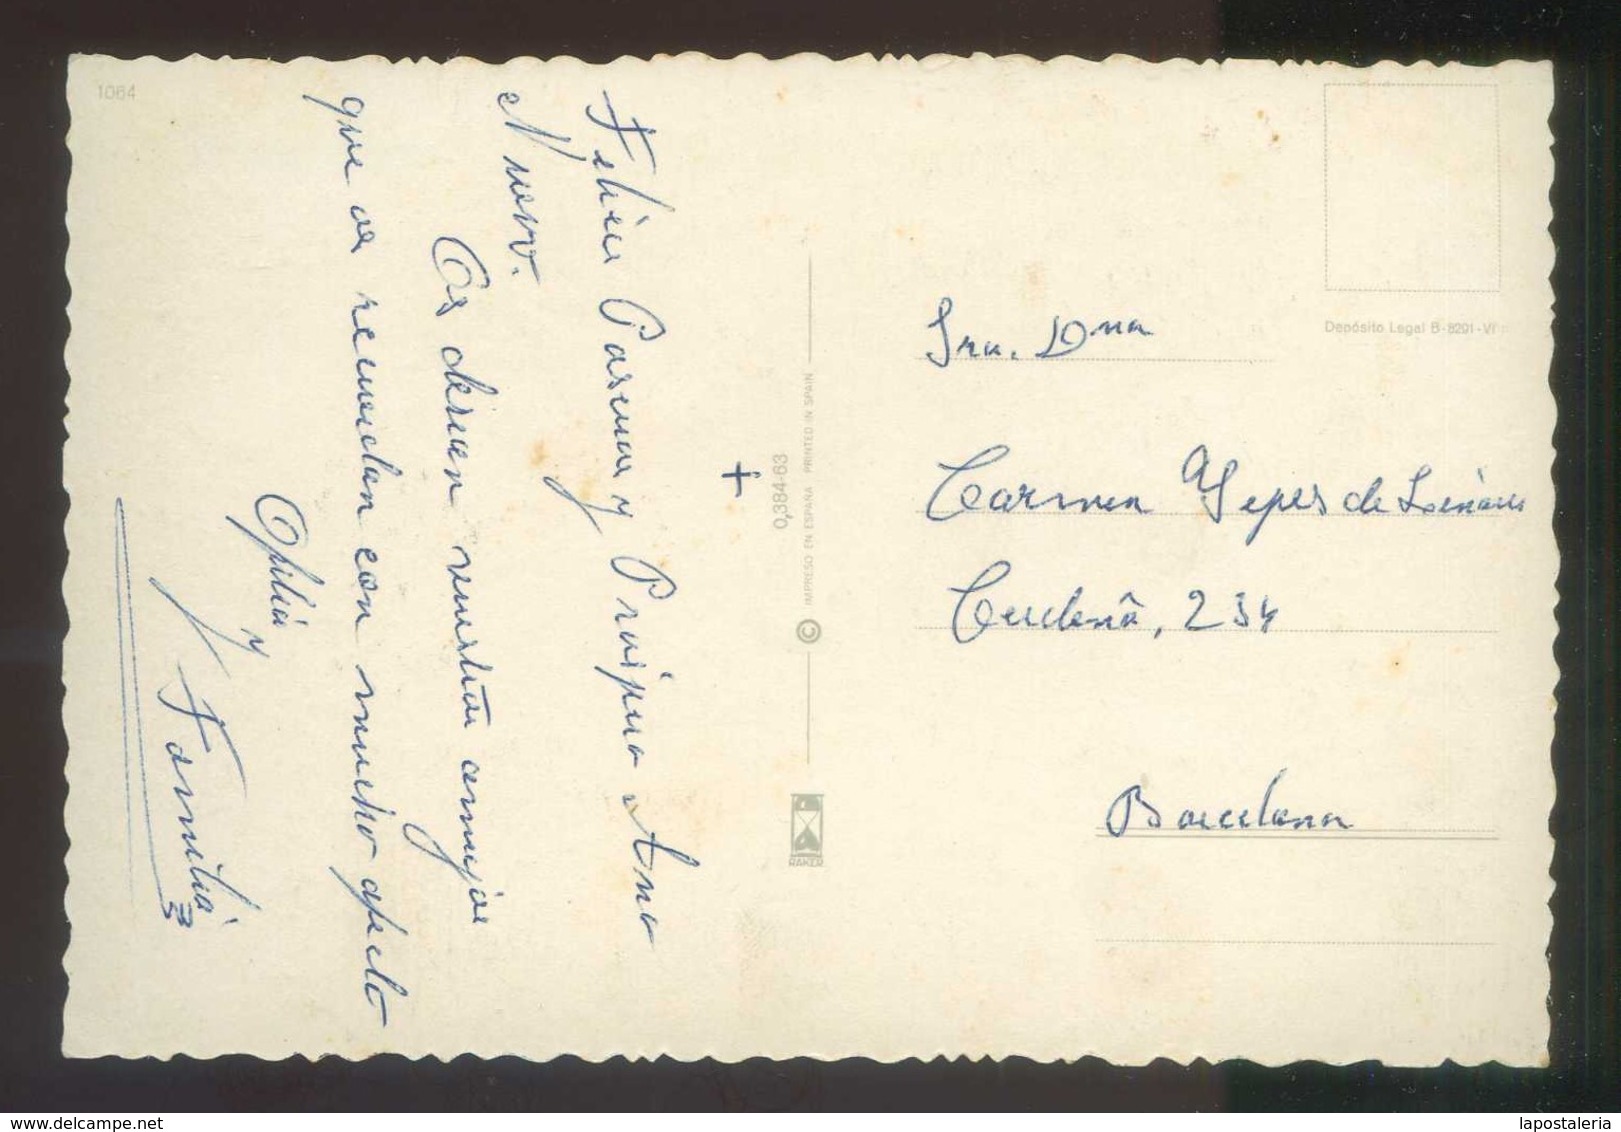 1064
+
Felices Pascuas y Próspero Año
Nuevo.
Os desean vuestras amigas
que os recuerdan con mucho afecto
Ofilia
y
Familia
0,384-63
© IMPRESO EN ESPAÑA PRINTED IN SPAIN
RAKER
Depósito Legal B-8291-VI
Sra. Dña
Carmen Yepes de
Cerdeña, 234
Barcelona
www.delcampe.net
lapostaleria